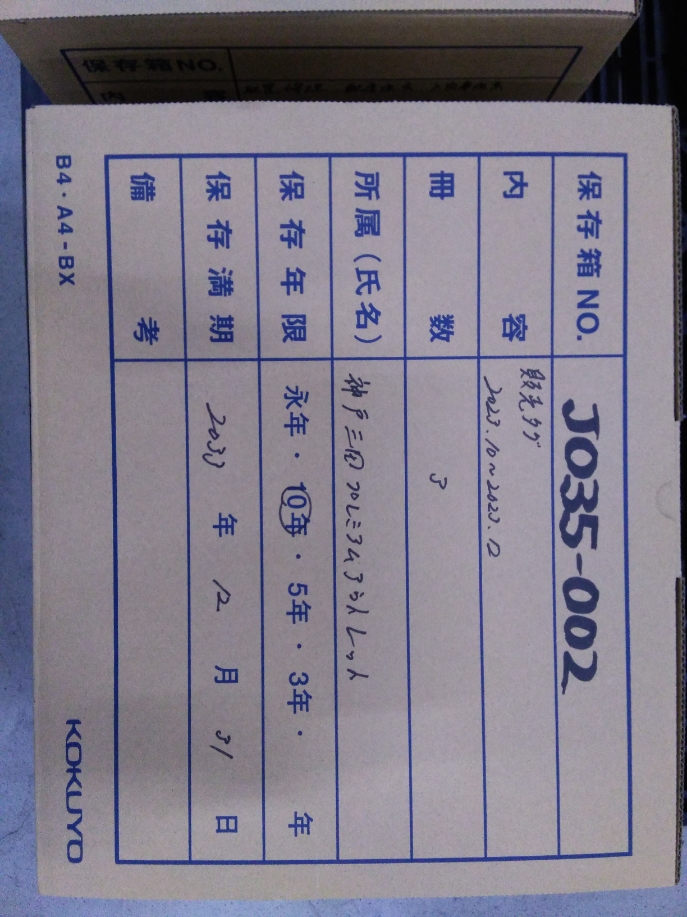 保存箱NO.
内
保存箱NO. J035-002
内容 販売タグ
2023.10~2023.12
冊数 3
所属(氏名) 神戸三田プレミアムアウトレット
保存年限 永年・10年・5年・3年・ 年
保存満期 2033年12月31日
備考
B4・A4-BX
KOKUYO